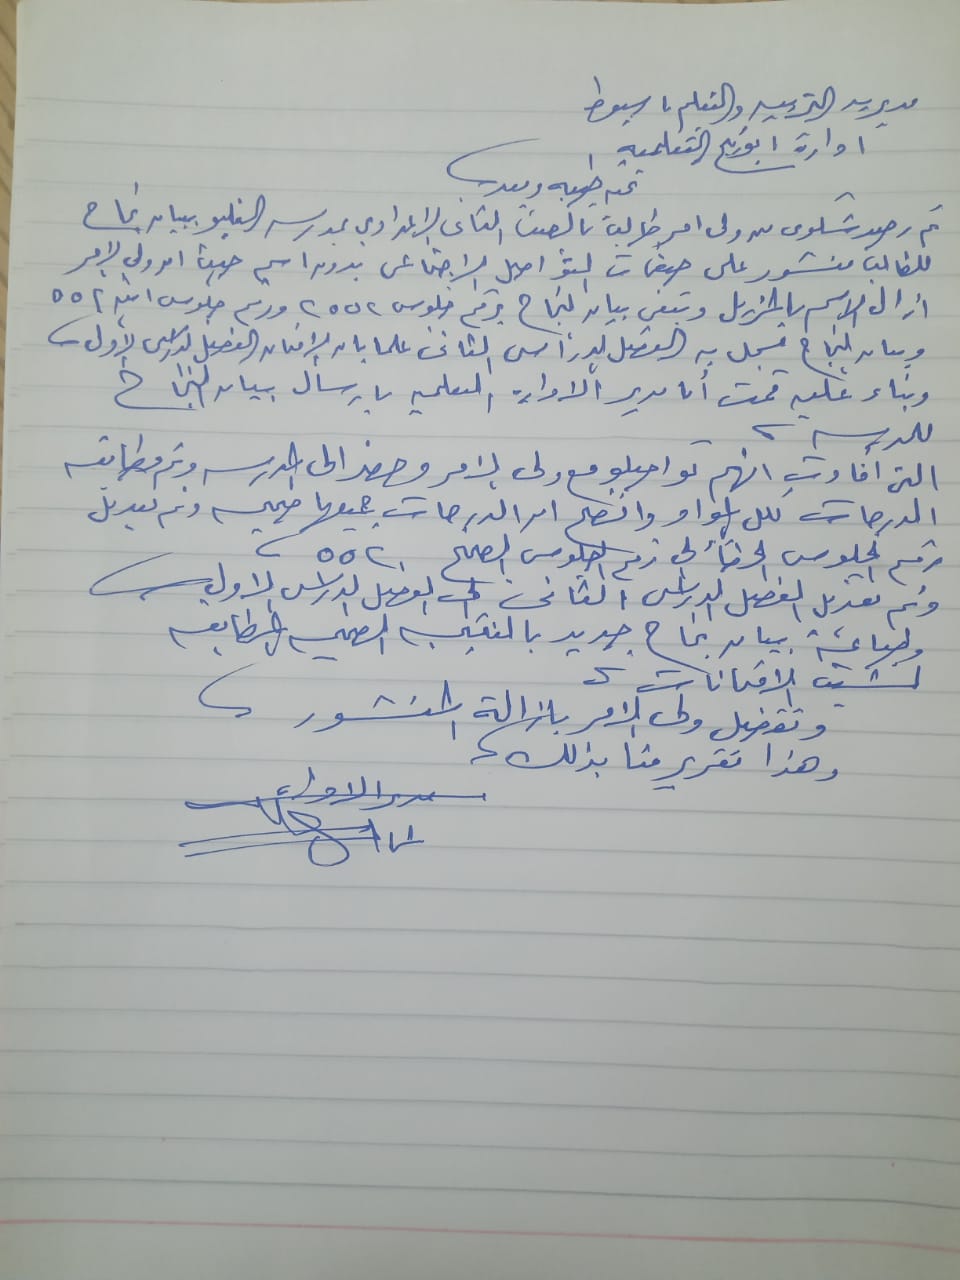 مديرية التربية والتعليم باسيوط
ادارة ابوتيج التعليمية
تحيه طيبه وبعد
تم رصد شكوى من ولى امر طالبة بالصف الثانى الإعدادي بمدرسه ببيان نجاح
للطالب منشور على صفحات التواصل الإجتماعى بدون اسم حيث ان ولي الامر
ازال الاسم بالمزيل وتبقى بيان النجاح برقم جلوس ٢٥٥٢ ورقم جلوس ابنته ٥٥٢
وبيان النجاح مسجل به الفصل الدراسى الثانى علما بان الامتحان الفصل الدراسى الأول
وبناء عليه قمت أنا مدير الادارة التعلميه بارسال بيان النجاح
للمدرسه
التى أفادت انهم تواصلو مع ولى الامر وحضر الى المدرسه وتم مطابقه
الدرجات لكل المواد واتضح ان الدرجات جميعها صحيحه وتم تعديل
رقم الجلوس الخطأ الي رقم الجلوس الصحيح ٥٥٢
وتم تعديل الفصل الدراسى الثانى الى الفصل الدراسى الاول
وطباعة بيان نجاح جديد بالنتيجه الصحيحه المطابقه
لشيت الامتحانات
وتفضل ولى الامر بازالة المنشور
وهذا تقرير منا بذلك
مدير الادارة